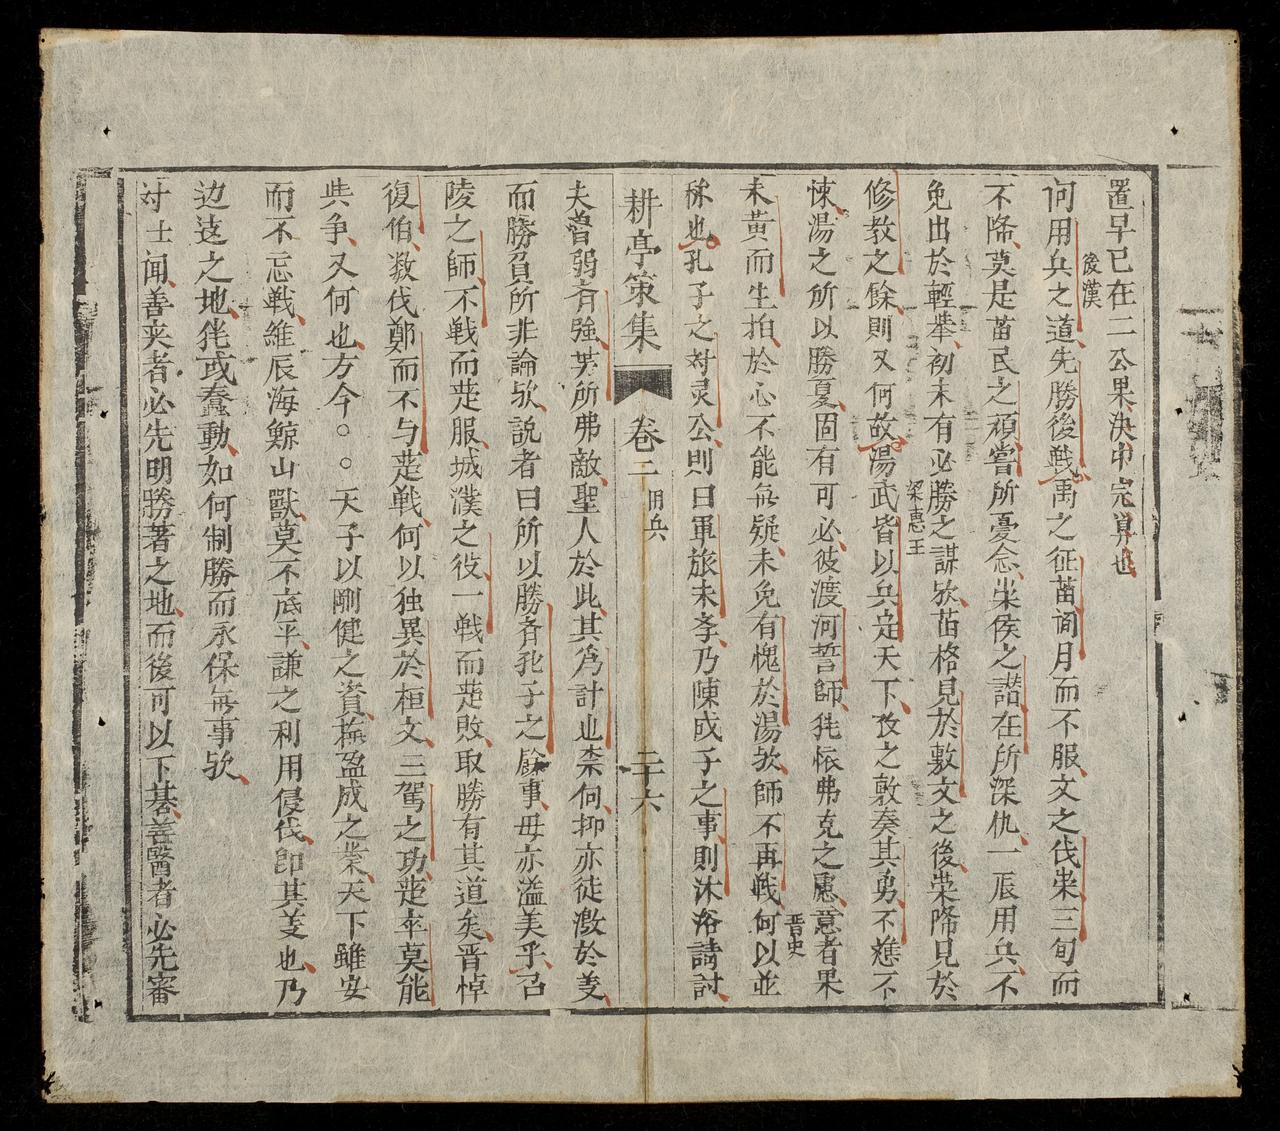 置早已在二公果決中完算也
问用兵之道先勝後戦禹之征苗询月而不服文之伐崇三旬而
後漢
不降莫是苗民之頑嘗所憂念崇侯之諎在所深仇一辰用兵不
免出於輕挙初未有必勝之謀欤苗格見於敷文之後崇降見於
修教之餘則又何故湯武皆以兵定天下攷之敷奏其勇不𢥠不
梁惠王
悚湯之所以勝夏固有可必彼渡河誓師犹怅弗克之慮意者果
未黄而生拍於心不能無疑未免有愧於湯欤師不再戦何以並
晋史
称也孔子之对灵公則曰軍旅未孝乃陳成子之事則沐浴請討
耕亭策集
卷二 用兵 二十六
夫魯弱斉強势所弗敵聖人於此其為計也柰何抑亦徒激於義
而勝負所非論欤説者曰所以勝斉孔子之餘事毋亦溢美乎召
陵之師不戦而楚服城濮之役一戦而楚敗取勝有其道矣晋悼
復伯数伐鄭而不与楚戦何以独異於桓文三駕之功楚卒莫能
与争又何也方今○○天子以剛健之資撫盈成之業天下雖安
而不忘戦維辰海鯨山獸莫不底平謙之利用侵伐即其義也乃
边逺之地犹或蠢動如何制勝而永保無事欤
对士闻善奕者必先明勝著之地而後可以下碁善醫者必先審